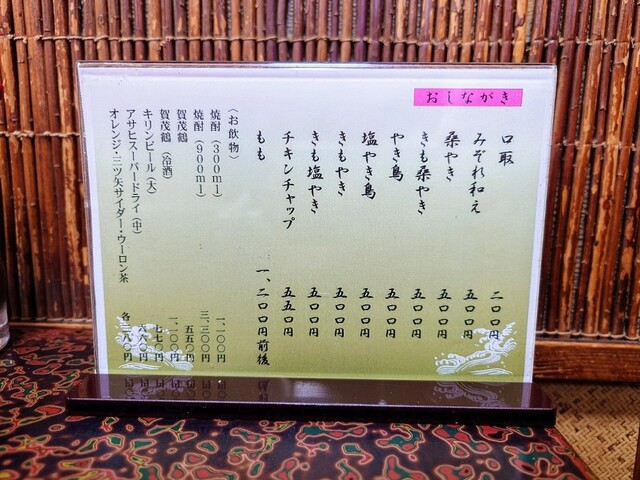 おしながき
口取 二〇〇円
みぞれ和え 五〇〇円
桑やき 五〇〇円
きも桑やき 五〇〇円
やき鳥 五〇〇円
塩やき鳥 五〇〇円
きもやき 五〇〇円
きも塩やき 五〇〇円
チキンチャップ 五五〇円
もも 一、二〇〇円前後
〈お飲物〉
焼酎（300ml） 一、一〇〇円
焼酎（900ml） 三、三〇〇円
賀茂鶴 五五〇円
賀茂鶴（冷酒） 一、一〇〇円
キリンビール（大） 七七〇円
アサヒスーパードライ（中） 六六〇円
オレンジ・三ツ矢サイダー・ウーロン茶